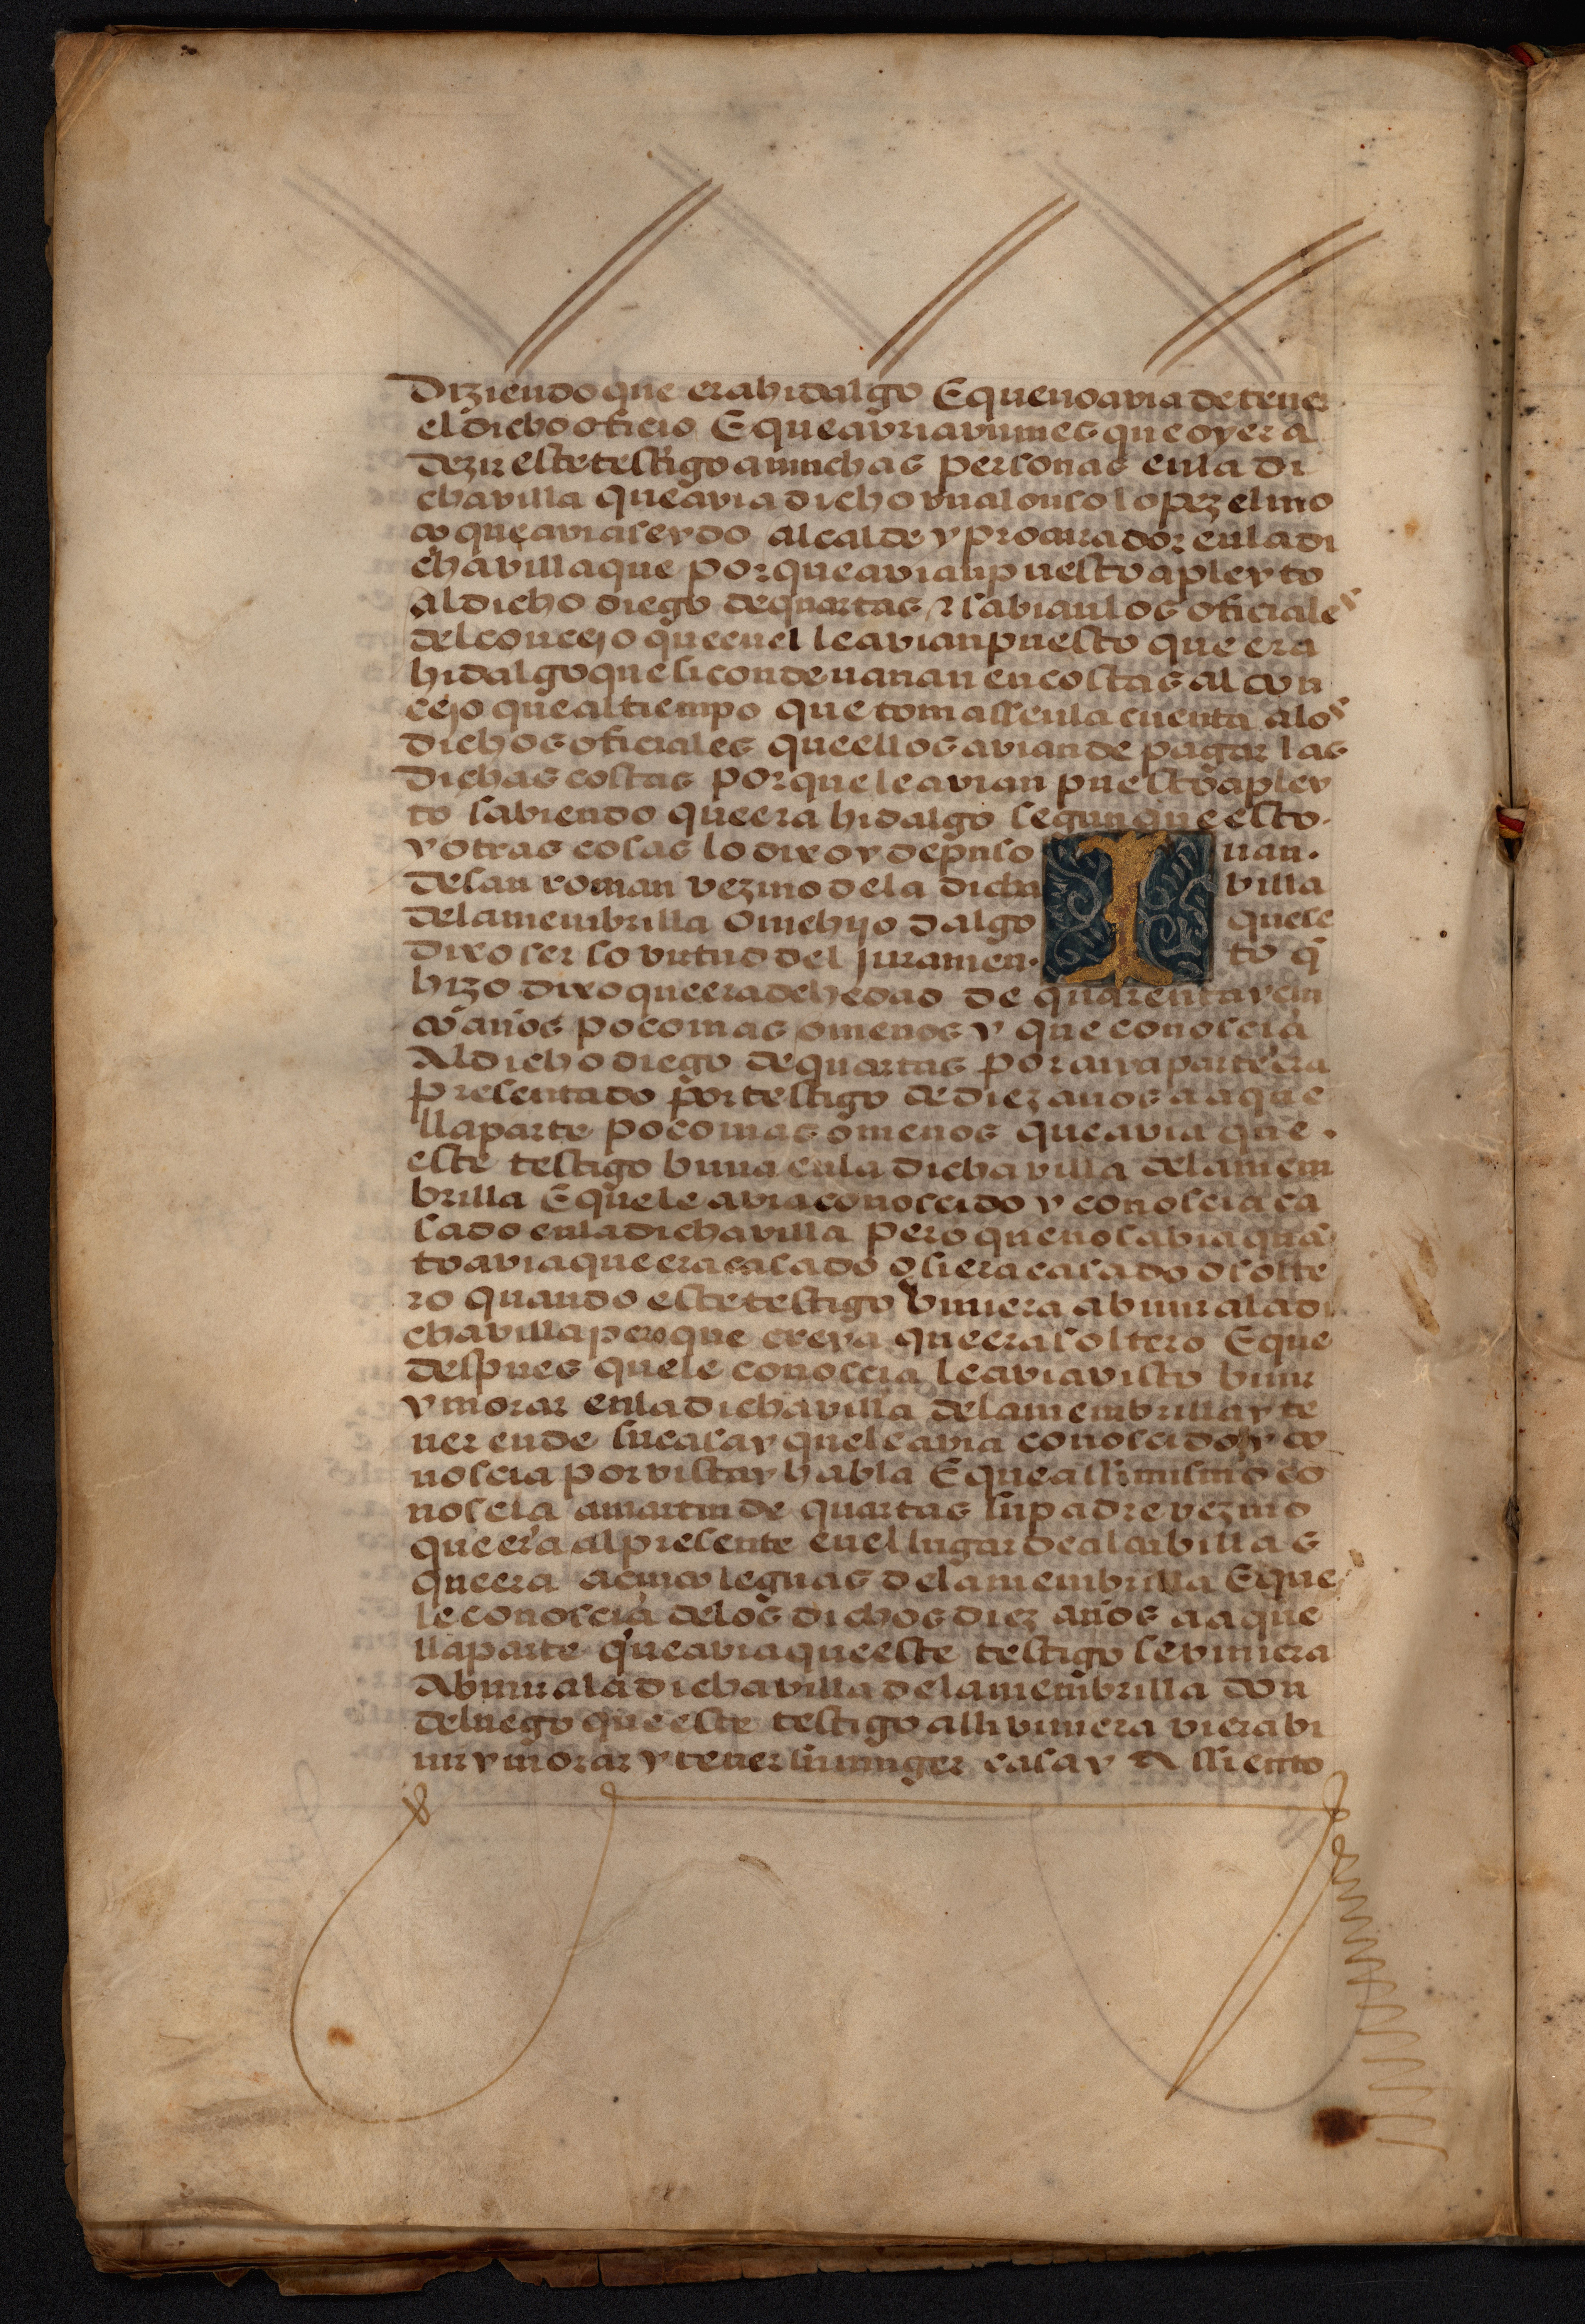 Diziendo que era hidalgo E que no avia de tener
el dicho oficio E que avria un mes que oyera
dezir este testigo a muchas personas en la di
cha villa que avia dicho un alonso lopez el mo
ço que avia seydo alcalde y procurador en la di
cha villa que porque avian puesto a pleyto
al dicho diego de quartas ⁊ sabian los oficiales
del concejo que en el le avian puesto que era
hidalgo que si condenavan en costas al con
cejo que al tiempo que tomassen la cuenta a los
dichos oficiales que ellos avian de pagar las
dichas costas porque le avian puesto a pley
to sabiendo que era hidalgo segun que esto
y otras cosas lo dixo y depuso Iuan
de san roman vezino de la dicha villa
de la membrilla ome hijo dalgo que se
dixo ser so virtud del juramento q̄
hizo dixo que era de hedad de quarenta y cin
co años poco mas o menos y que conoscia
Al dicho diego de quartas por cuya parte era
presentado por testigo de diez años a aque
lla parte poco mas o menos que avia que
este testigo biuia en la dicha villa de la mem
brilla E que le avia conoscido y conoscia ca
sado en la dicha villa pero que no sabia quā
to avia que era casado o si era casado o solte
ro quando este testigo viniera a biuir a la di
cha villa pero que creya que era soltero E que
despues que le conoscia le avia visto biuir
y morar en la dicha villa de la membrilla y te
ner ende su casa y que le avia conoscido y co
noscia por vista y habla E que assi mismo co
noscia a martin de quartas su padre vezino
que era al presente en el lugar de alcubillas
que era a cinco leguas de la membrilla E que
le conoscia de los dichos diez años a aque
lla parte que avia que este testigo se viniera
A biuir a la dicha villa de la membrilla don
de luego que este testigo alli viniera viera bi
uir y morar y tener su muger casa y Assiento